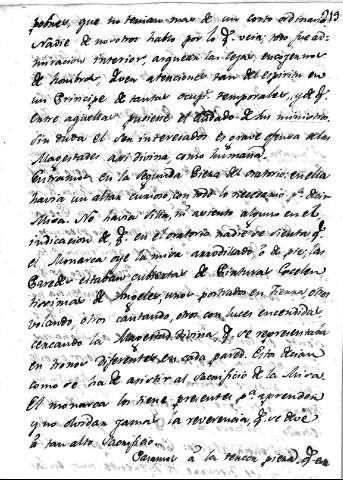 215
pobres, que no tenian mas de un corto ordinario.
Nadie de nosotros hablo por lo q. veia; todo fue ad-
miracion interior, arquear las cejas, encogernos
de hombros, y ver atenciones tan de espiritu en
un Principe de tantas ocup.s temporales, y de q.
Entre aquellas pusiese el cuidado de su ministro
sin duda el ser interesados es grave ofensa a las
Magestades asi divina, como humana.
Entramos en la segunda Pieza del oratorio: en ella
havia un altar curioso, con todo lo necesario p.a decir
Misa. No havia silla, ni asiento alguno en el,
indicacion de q. en el oratorio nadie se sienta, y q.
el Monarca oye la misa arrodillado, ò de pie; las
Paredes estaban cubiertas de Pinturas Excelen
tisimas de Angeles, unos postrados en tierra, otros
volando, otros cantando, otros con luces encendidas
cercando la Magestad divina, q. se representaba
en tronos diferentes en cada pared. Esto decian
como se ha de asistir al Sacrificio de la Misa.
El monarca los tiene presentes p.a aprenden
y no olvidan jamas la reverencia, q. se deve
à tan alto Sacrificio.
Pasamos à la tercera pieza, q. en